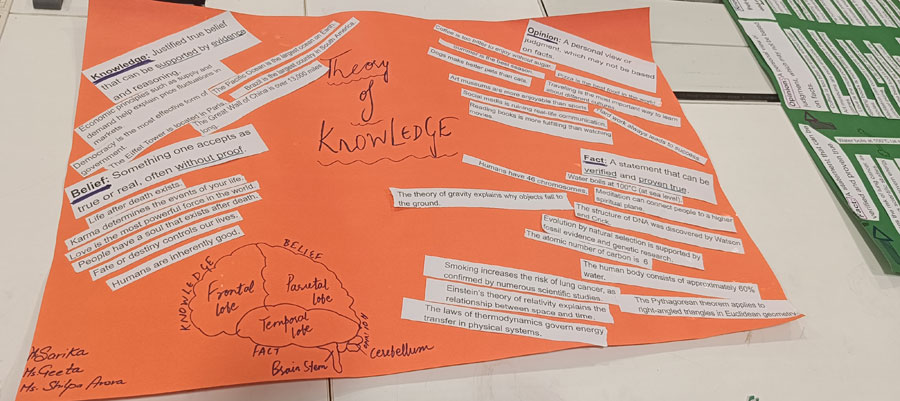 Knowledge: Justified true belief
that can be supported by evidence
and reasoning.
Economic principles such as supply and
demand help explain price fluctuations in
markets.
The Pacific Ocean is the largest ocean on Earth.
Brazil is the largest country in South America.
Democracy is the most effective form of
government.
The Great Wall of China is over 13,000 miles
long.
The Eiffel Tower is located in Paris.
Belief: Something one accepts as
true or real, often without proof.
Life after death exists.
Karma determines the events of your life.
Love is the most powerful force in the world.
People have a soul that exists after death.
Fate or destiny controls our lives.
Humans are inherently good.
Theory
of
KNOWLEDGE
Opinion: A personal view or
judgment, which may not be based
on facts.
Coffee is too bitter to enjoy without sugar.
Summer is the best season.
Dogs make better pets than cats.
Pizza is the best food in the world.
Traveling is the most important way to learn
about different cultures.
Art museums are more enjoyable than
Social media is ruining real-life communication.
Hard work always leads to success.
Reading books is more fulfilling than watching
movies.
Fact: A statement that can be
verified and proven true.
Humans have 46 chromosomes.
Water boils at 100°C (at sea level).
Meditation can connect people to a higher
spiritual plane.
The theory of gravity explains why objects fall to
the ground.
The structure of DNA was discovered by Watson
and Crick.
Evolution by natural selection is supported by
fossil evidence and genetic research.
The atomic number of carbon is 6
The human body consists of approximately 60%
water.
Smoking increases the risk of lung cancer, as
confirmed by numerous scientific studies.
Einstein's theory of relativity explains the
relationship between space and time.
The Pythagorean theorem applies to
right-angled triangles in Euclidean geometry
The laws of thermodynamics govern energy
transfer in physical systems.
KNOWLEDGE
BELIEF
Frontal
lobe
Parietal
lobe
Temporal
lobe
FACT
Brain Stem
Cerebellum
Sarika
Ms Geeta
Ms. Shilpa Arora
Opinion: